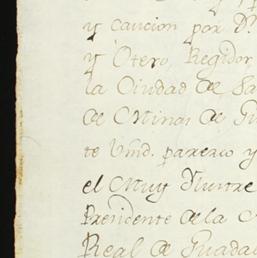 y caucion por D.ⁿ
y Otero, Regidor
la Ciudad de Sa
de Minas de Gu
te Vmd. parecio y
el Muy Ylustre
Presidente de la
Real de Guadal